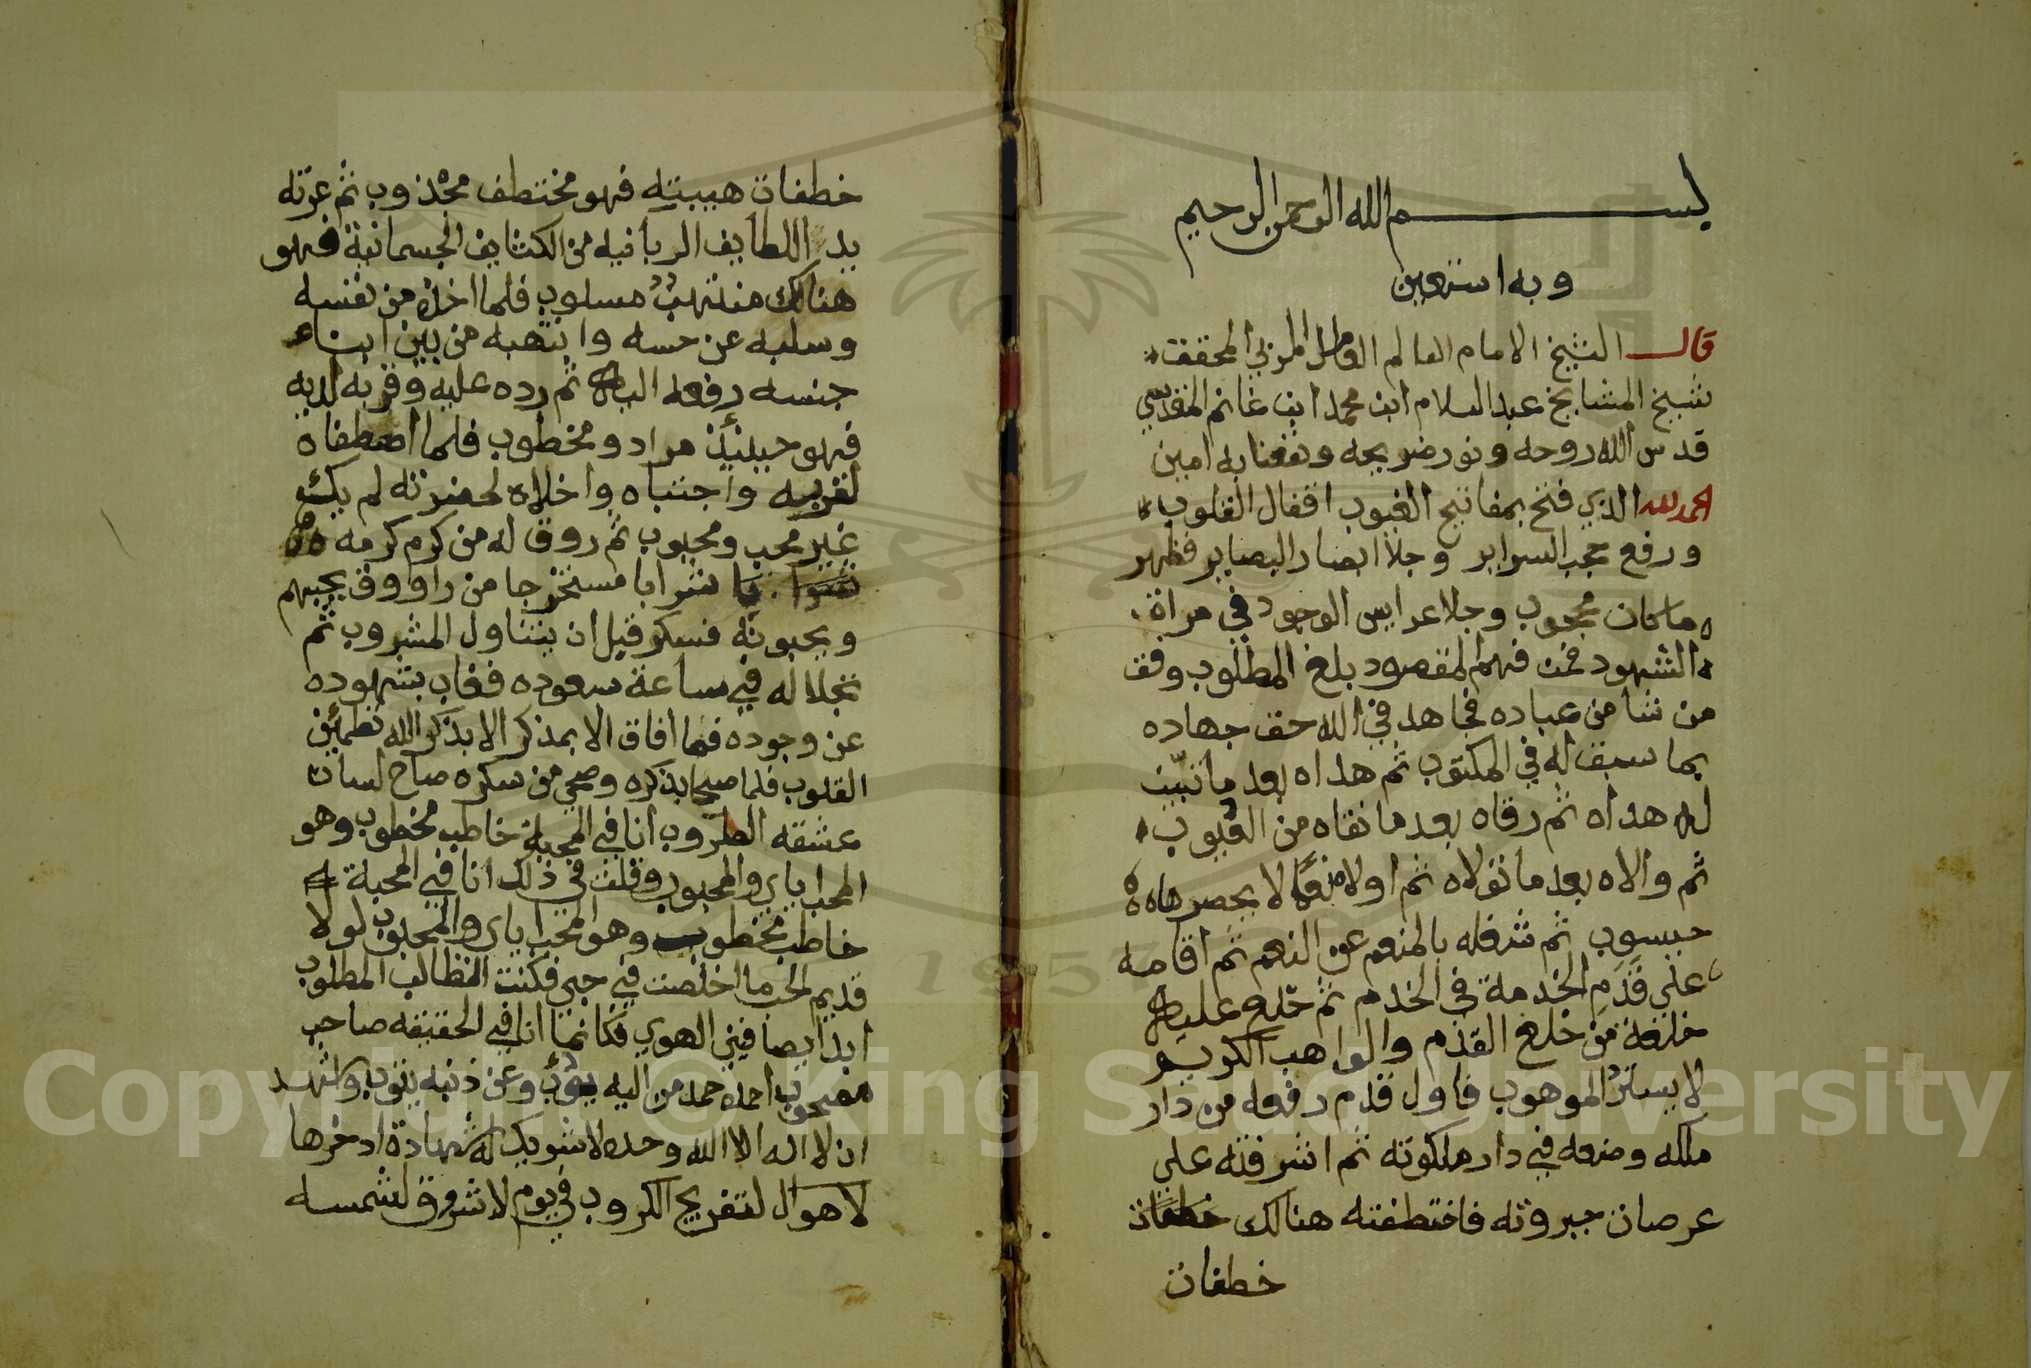 بسم الله الرحمن الرحيم
وبه استعين
قال الشيخ الامام العالم العامل المربي المحقق
شيخ المشايخ عبد السلام ابن محمد ابن غانم المقدسي
قدس الله روحه ونور ضريحه ونفعنا به امين
الحمد لله الذي فتح بمفاتيح الغيوب اقفال القلوب
ورفع حجب السراير وجلا ابصار البصاير فظهر
ما كان محجوب وجلا عرايس الوجود في مراة
الشهود فمن فهم المقصود بلغ المطلوب وفق
من شا من عباده فجاهد في الله حق جهاده
بما سبق له في المكتوب ثم هداه بعد ما تبين
له هداه ثم رقاه بعد ما نقاه من العيوب
ثم والاه بعد ما تولاه ثم اولاه نعما لا يحصرها
حيسوب ثم شغله بالمنعم عن النعم ثم اقامه
علي قدم الخدمة في الخدم ثم خلع عليه
خلعة من خلع القدم والواهب الكريم
لا يسترد الموهوب فاول قدم رفعه من دار
ملكه وضعه في دار ملكوته ثم اشرفته علي
عرصات جبروته فاختطفته هنالك خطفات
خطفات
خطفات هيبته فهو مختطف مجذوب ثم عزته
يد اللطايف الربانيه من الكثايف الجسمانية فهو
هنالك منتهب مسلوب فلما اخذه من نفسه
وسلبه عن حسه وانتهبه من بين ابناء
جنسه رفعه اليه ثم رده عليه وقربه لديه
فهو حينئذ مراد ومخطوب فلما اصطفاه
لقربه واجتباه واخلاه لحضرته لم يكن
غير محب ومحبوب ثم روق له من كرم كرمه
شرابا مستخرجا من راووق يحبهم
ويحبونه فسكر قبل ان يتناول المشروب ثم
تجلا له في ساعة سعوده فغاب بشهوده
عن وجوده فما افاق الا بمذكر الا بذكر الله تطمئن
القلوب فلما صحا بذكره وصحي من سكره صاح لسان
عشقه الطروب انا في المحبة خاطب مخطوب وهو
المحب اياي والمحبوب وقلت في ذلك انا في المحبة
خاطب مخطوب وهو المحب اياي والمحبوب لولا
قديم الحب ما اخلصت في حبي فكنت الطالب المطلوب
ابدا يصافيني الهوي فكانما انا في الحقيقه صاحب
مصحوب احمده حمد من اليه يؤب وعن ذنبه يتوب واشهد
ان لا اله الا الله وحده لا شريك له شهادة ادخرها
لاهوال لتفريج الكروب في يوم لا شروق لشمسه
Copyright © King Saud University
1957